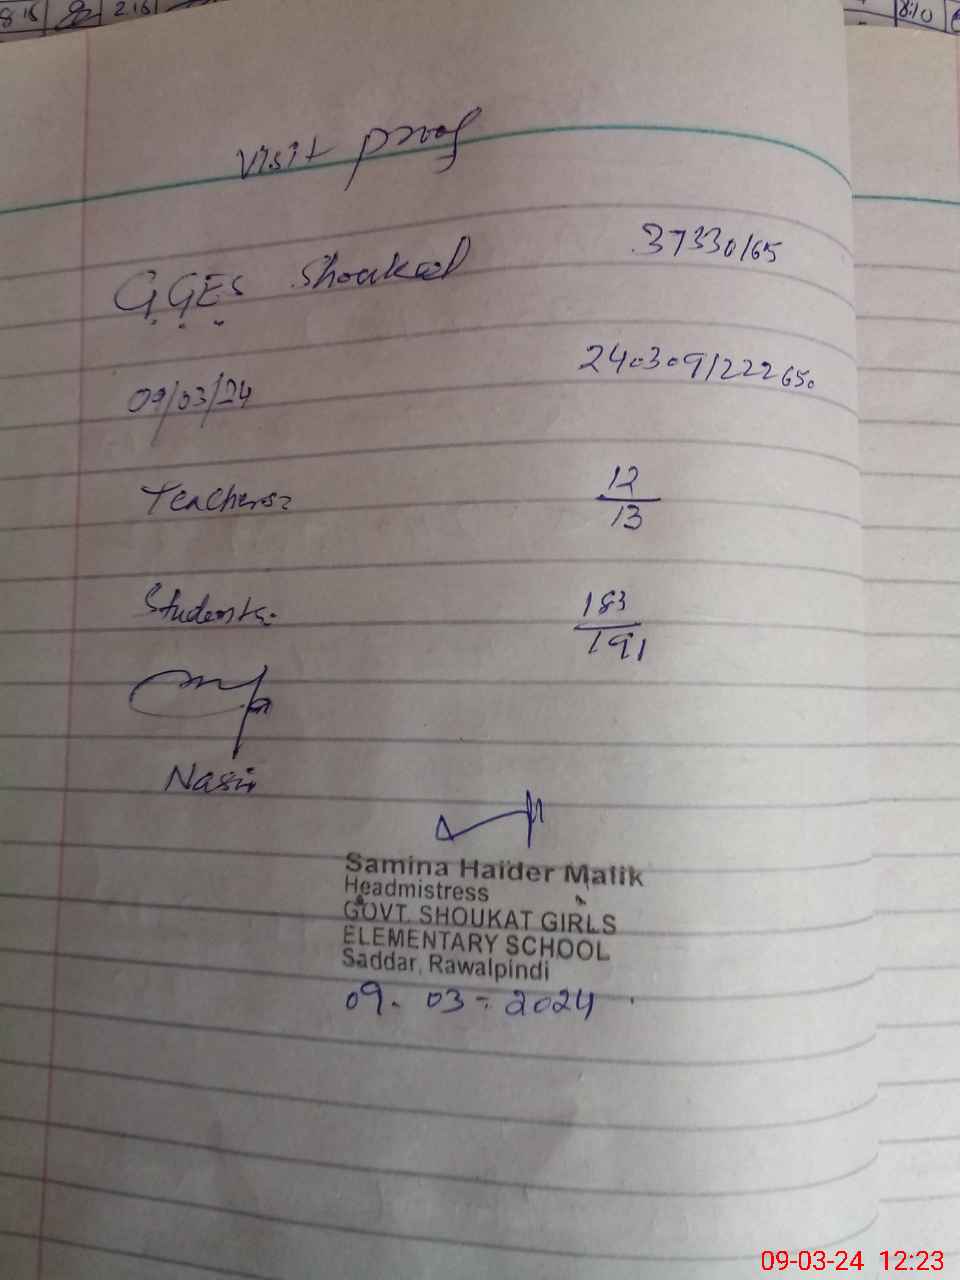 8:15 216
8:10
Visit proof
GGES Shoukat 37330165
09/03/24 240309122265.
Teachers: 12/13
Students: 183/191
Nasir
Samina Haider Malik
Headmistress
GOVT. SHOUKAT GIRLS
ELEMENTARY SCHOOL
Saddar, Rawalpindi
09-03-2024
09-03-24 12:23